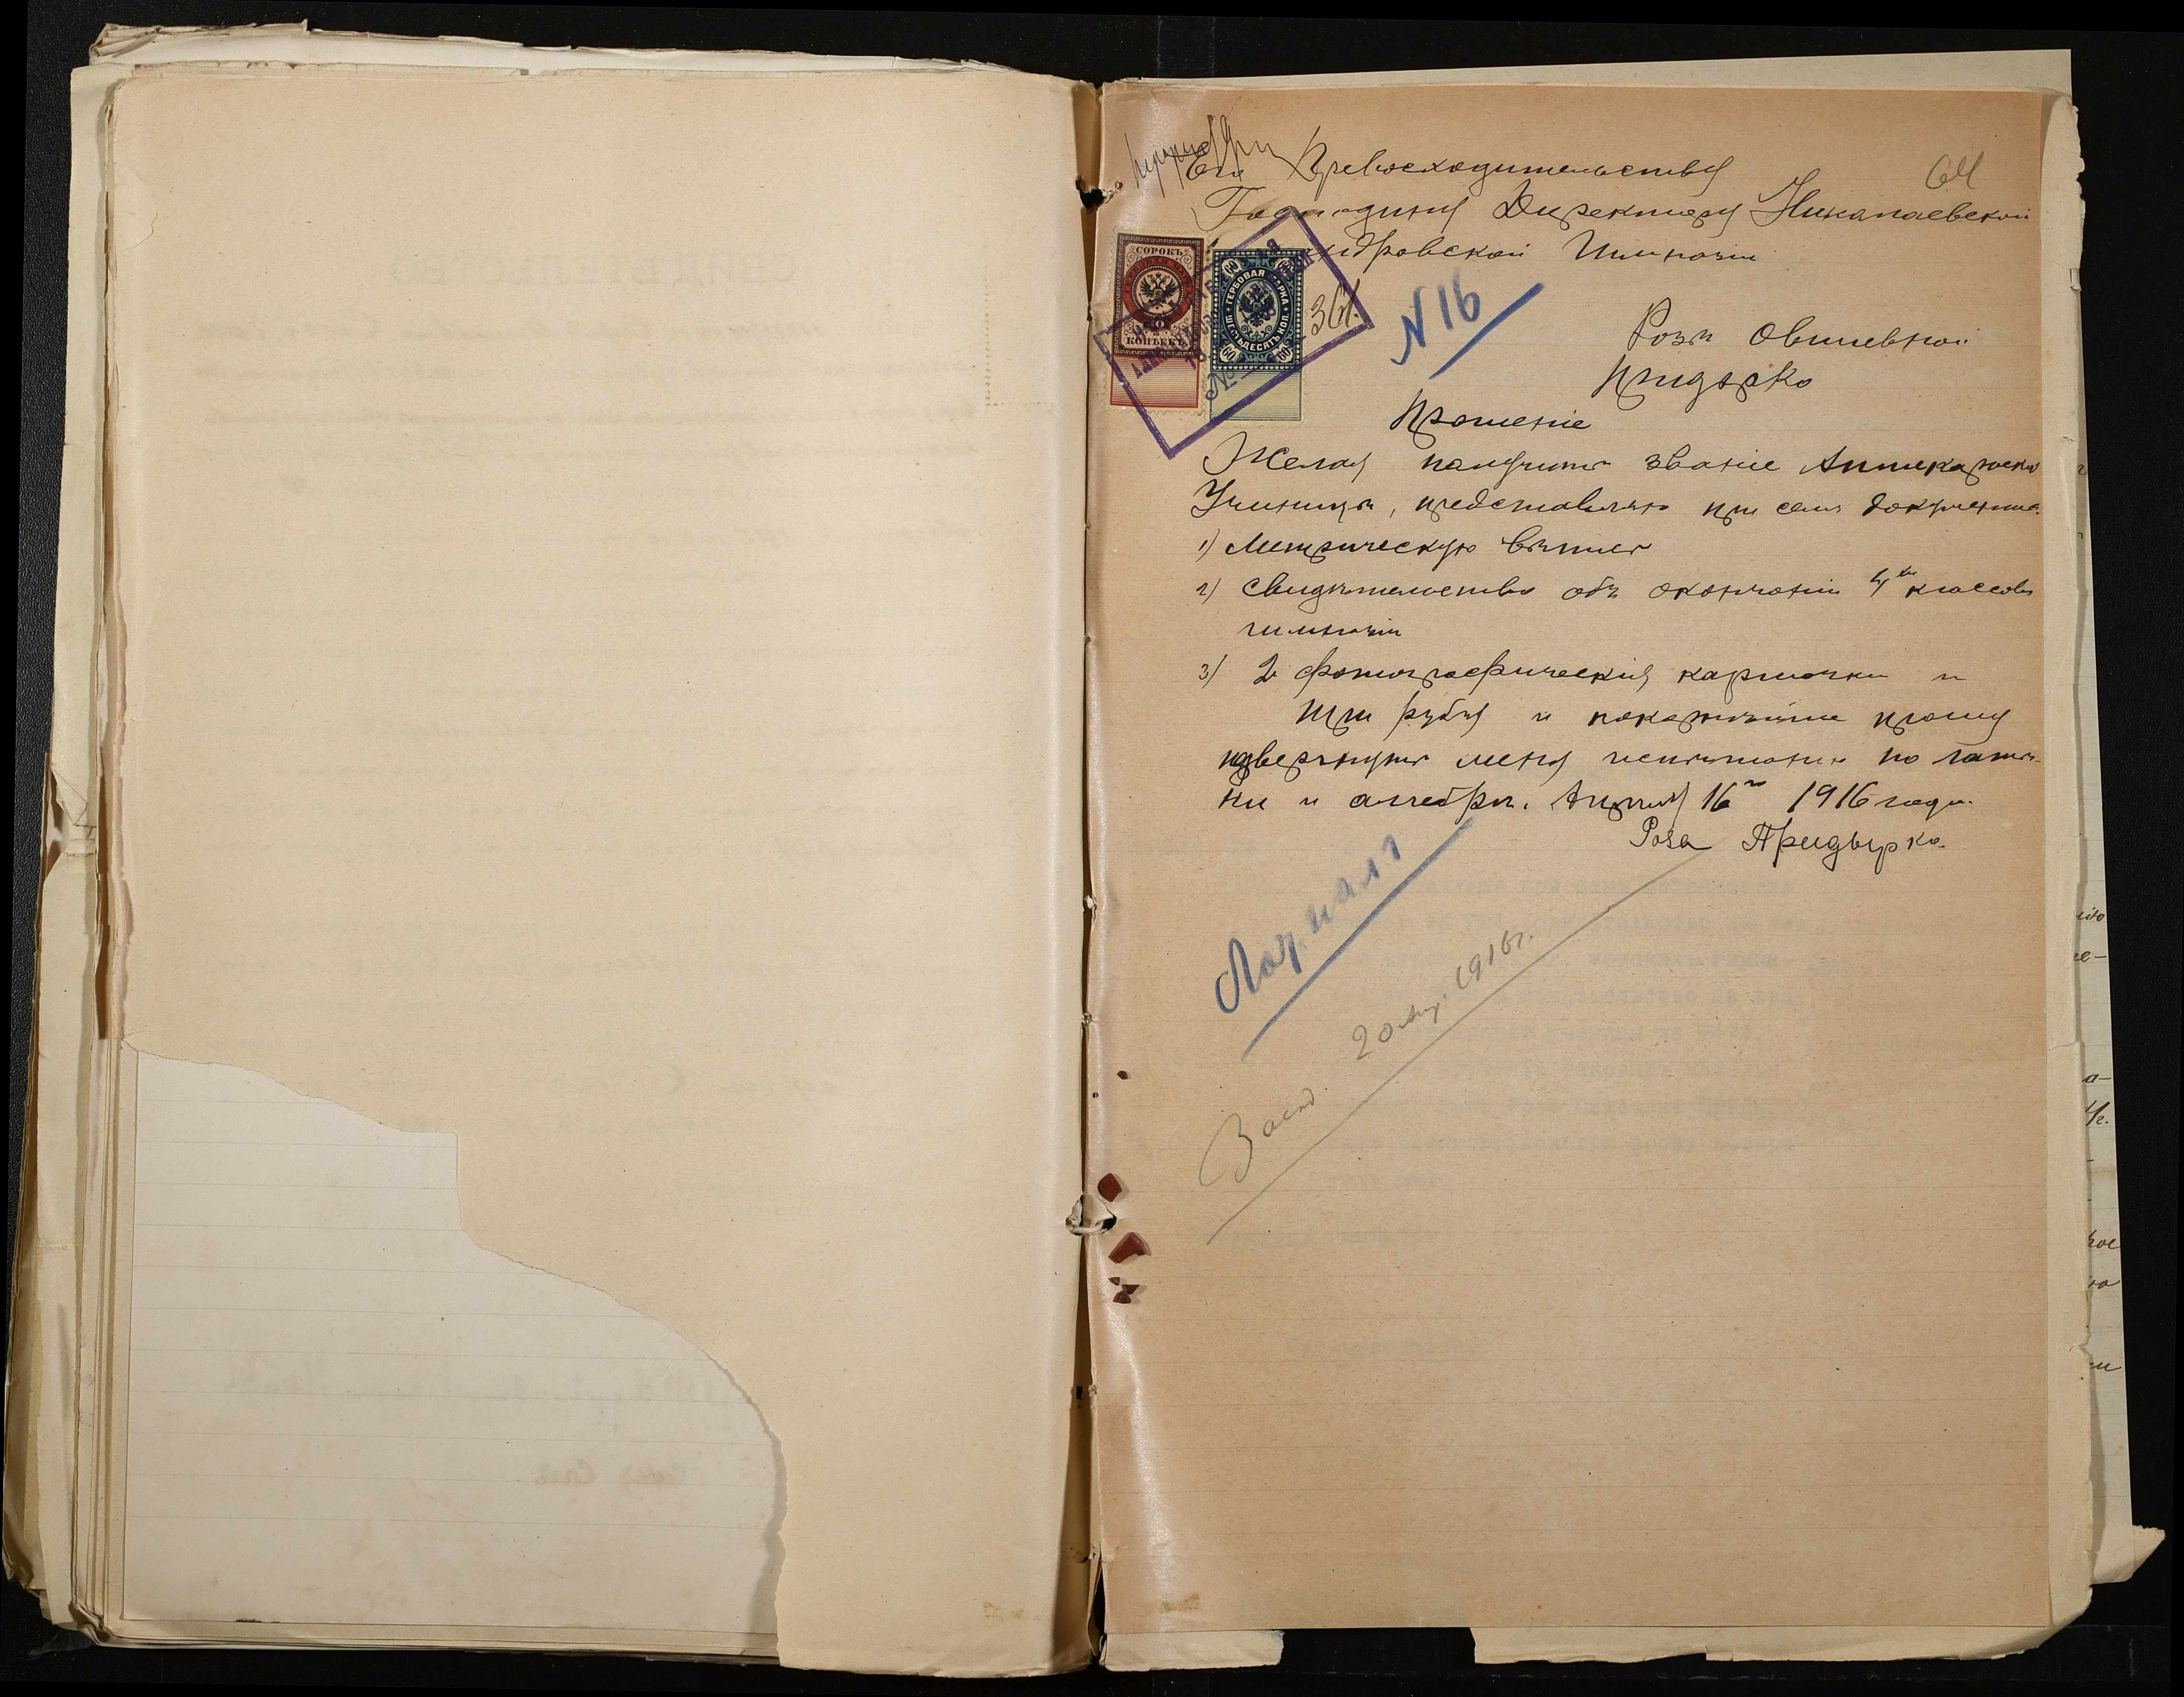 Его Превосходительству
64
Господину Директору Николаевской
ндровской Гимназіи
СОРОКЪ
КОПѢЕКЪ
ГЕРБОВАЯ МАРКА
ШЕСТЬДЕСЯТЪ КОП.
60
361.
№ 16
Розы Овшіевной
Придырко
Прошеніе
Желая получить званіе Аптекарской
Ученицы, представляю при семъ документы
1) Метрическую выпись
2) Свидѣтельство объ окончаніи 4хъ классовъ
гимназіи
3) 2 фотографическія карточки и
три рубля и покорнѣйше прошу
подвергнуть меня испытанію по латы-
ни и алгебрѣ. Апрѣля 16го 1916 года.
Роза Придырко.
Засѣд. 20 апр. 1916 г.